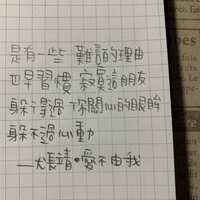 是有一些 難言的理由
也早習慣 寂寞這朋友
躲得過 你關心的眼眸
躲不過 心動
——尤長靖•愛不由我
pes